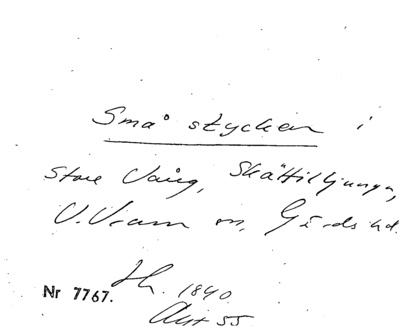 Små stycken i
Store Vång, Skättilljunga,
V. Vram m, Gärds hd.
Nr 7767. Jh. 1840
Akt 55